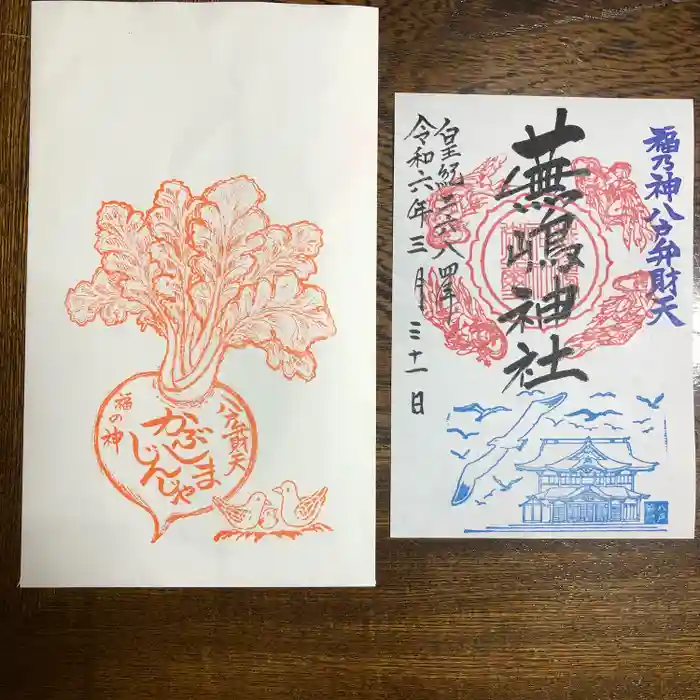 八戸弁財天
かぶしま
じんじゃ
福の神
福乃神八戸弁財天
蕪嶋神社
皇紀二六八四年
令和六年三月三十一日